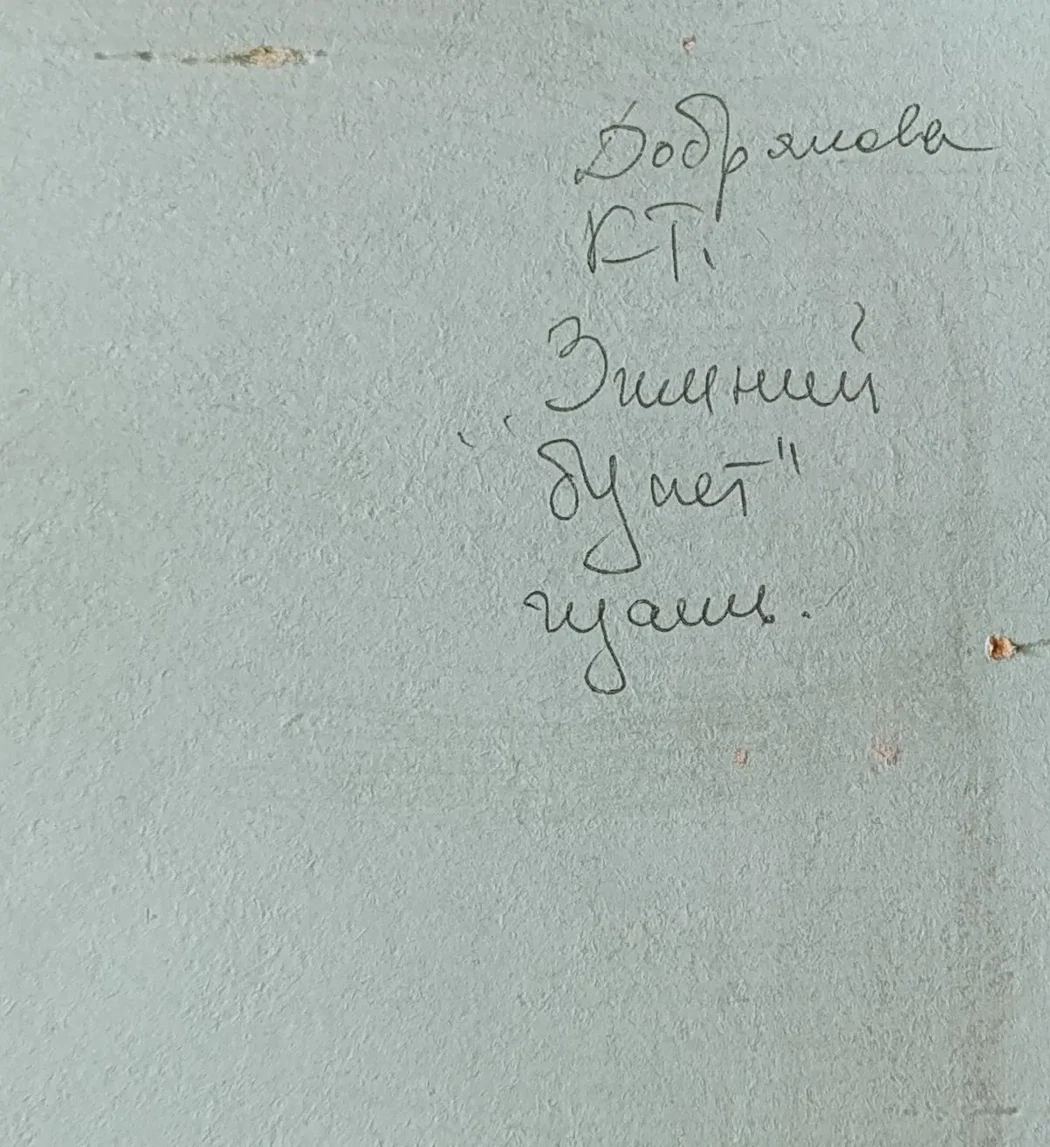 Добрякова
К Т.
"Зимний
букет"
гуашь.